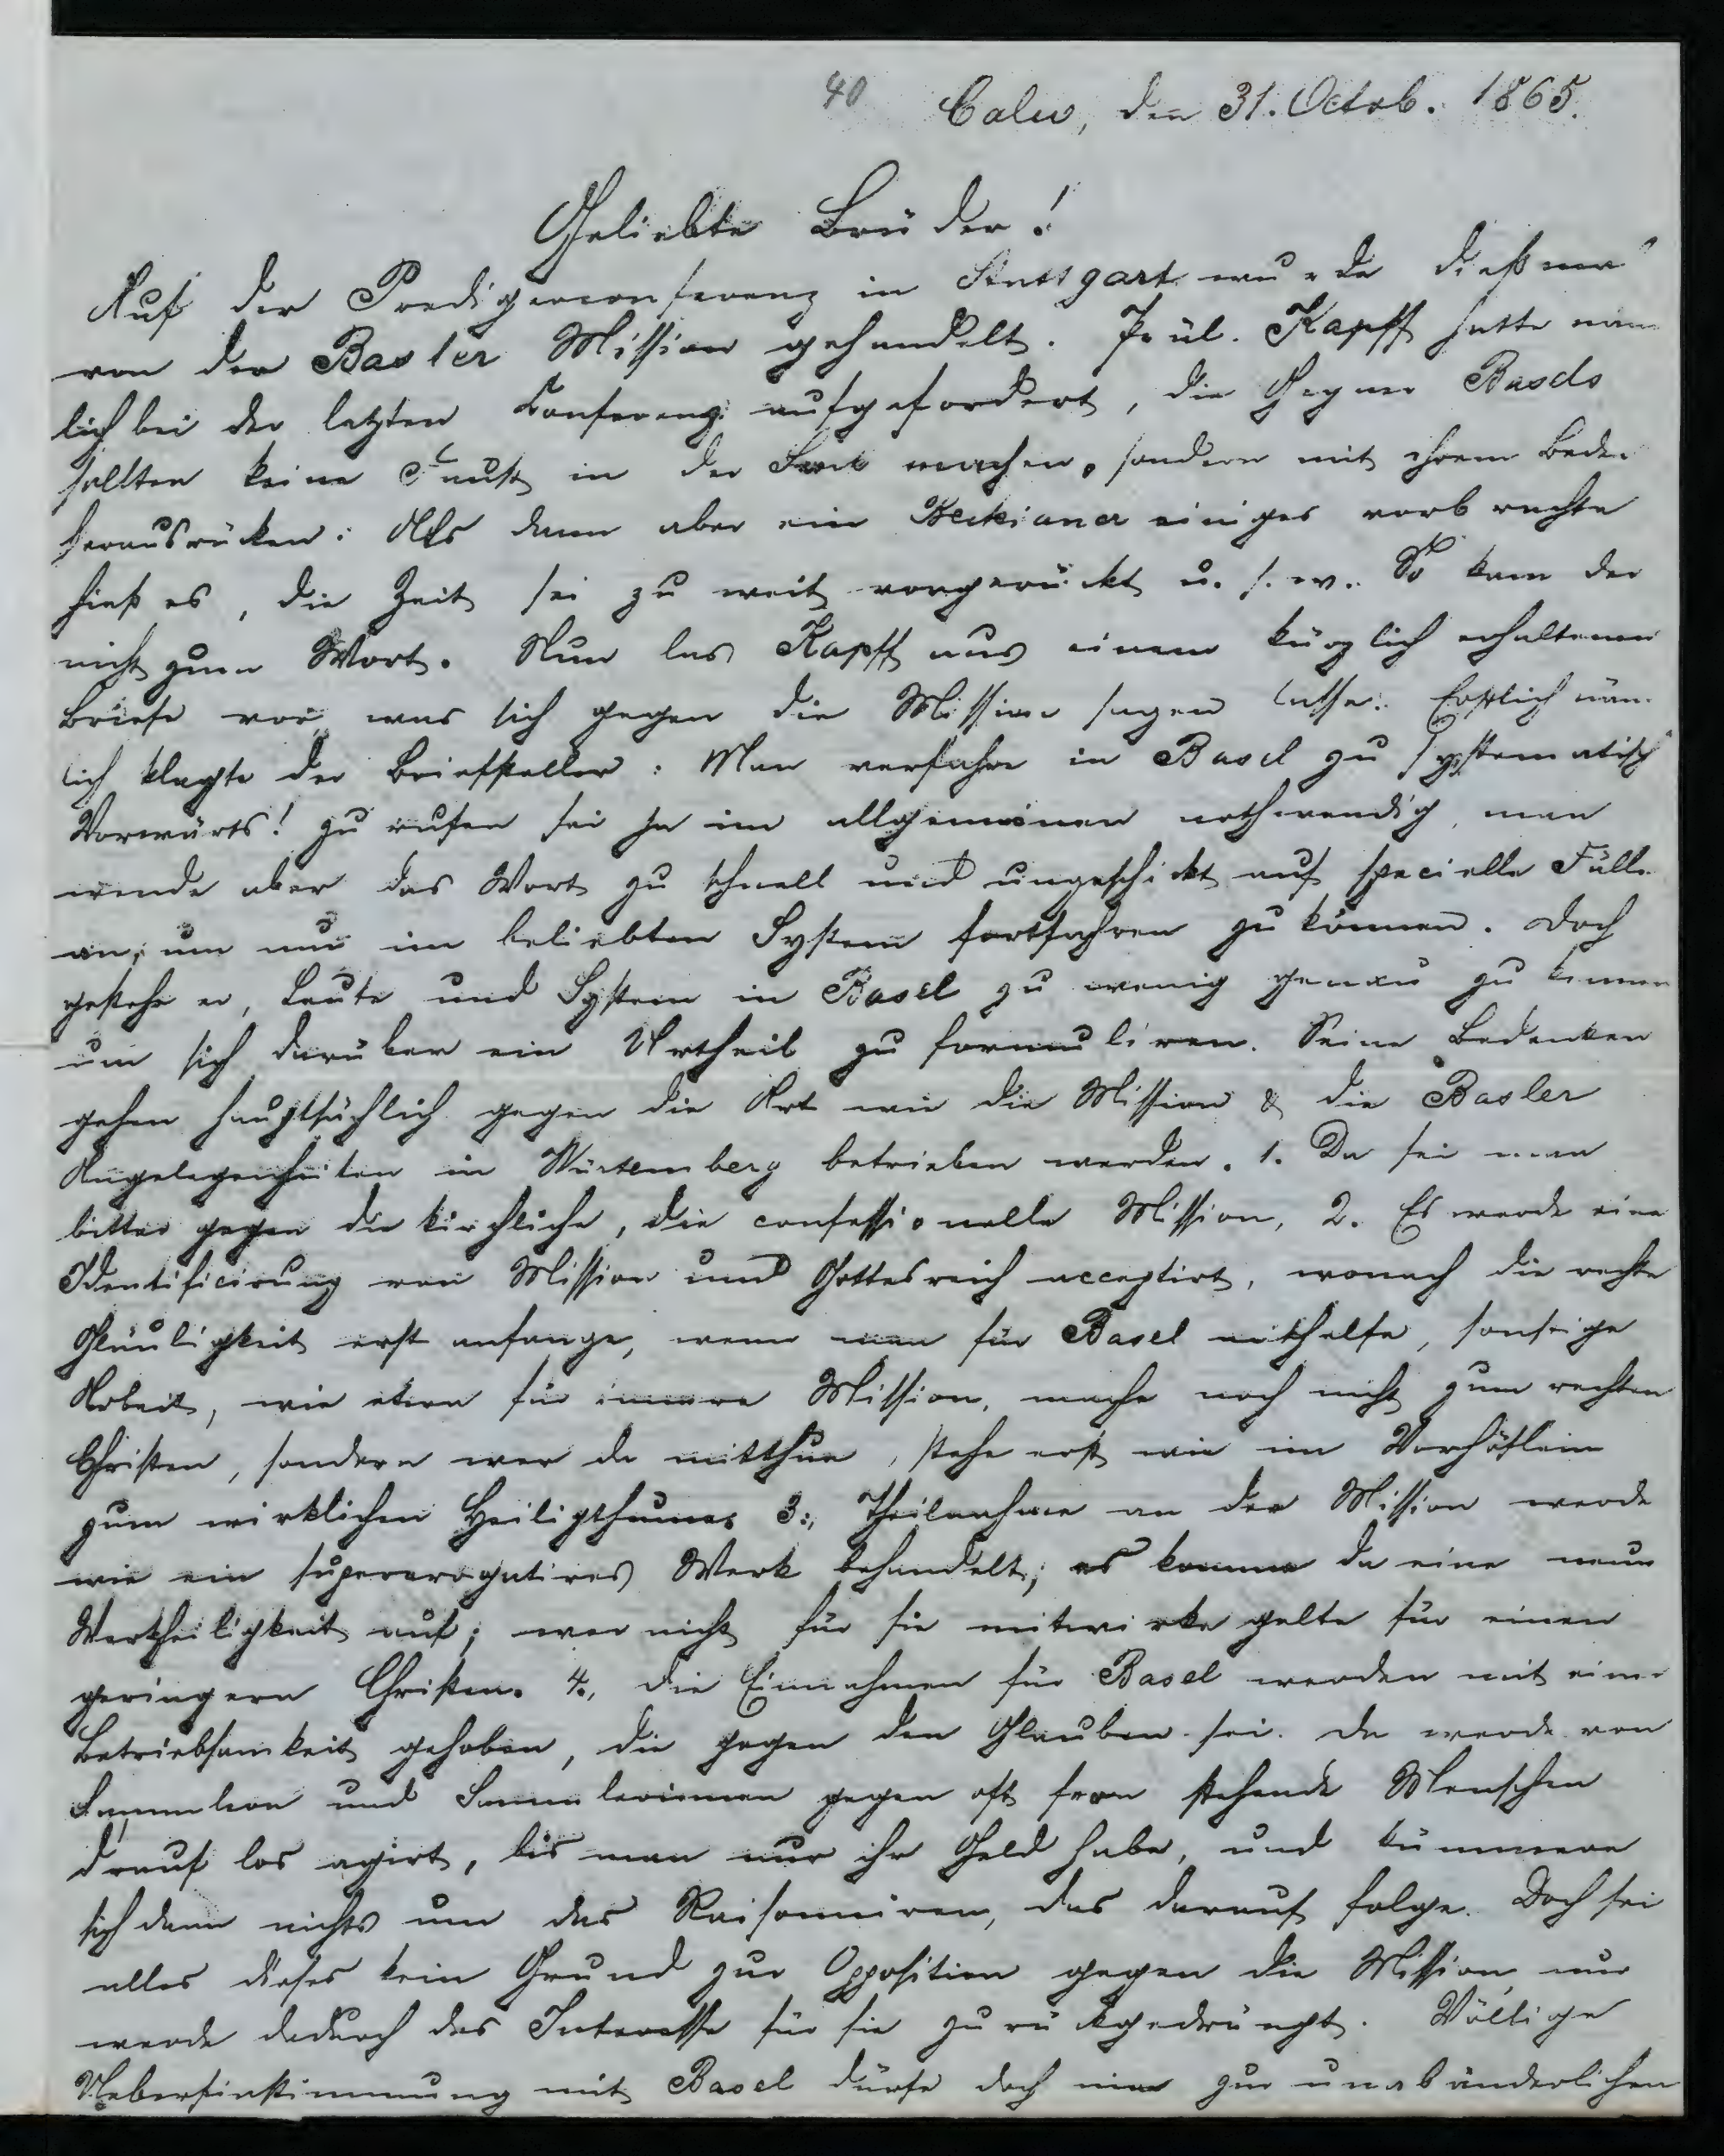 40 Calw, den 31. Octob. 1865.
Geliebte Brüder!
Auf der Predigerconferenz in Stuttgart wurde dießmal
von der Basler Mission gehandelt. Präl. Kapff hatte näm
lich bei der letzten Conferenz aufgefordert, die Gegner Basels
sollten keine Faust in der Sack machen, sondern mit ihrem Beden
herausrücken: Als dann aber ein Beckianer einiges vorbrachte
hieß es, die Zeit sei zu weit vorgerückt u. s. w. So kam der
nicht zum Wort. Nun las Kapff aus einem kürzlich erhaltenen
Briefe vor, was sich gegen die Mission sagen lasse. Erstlich näm
lich klagte der Briefsteller: Man verfahre in Basel zu systematisch
Vorwärts! zu rufen sei ja im allgemeinen nothwendig, man
wende aber das Wort zu schnell und ungeschickt auf specielle Fälle
an, um nur im beliebten System fortfahren zu können. Doch
gestehe er, Leute und System in Basel zu wenig genau zu kennen
um sich darüber ein Urtheil zu formuliren. Seine Bedenken
gehen hauptsächlich gegen die Art wie die Mission & die Basler
Angelegenheiten in Würtemberg betrieben werden. 1. Da sei man
bitter gegen die kirchliche, die confessionelle Mission, 2. Es werde eine
Identificirung von Mission und Gottesreich acceptirt, wonach die rechte
Gläubigkeit erst anfange, wenn man für Basel mithelfe, sonstige
Arbeit, wie etwa für innere Mission, mache noch nicht zum rechten
Christen, sondern wer da mitthue, stehe erst wie im Vorhöflein
zum wirklichen Heiligthume. 3., Theilnahme an der Mission werde
wie ein supererogatives Werk behandelt; es komme da eine neue
Werkheiligkeit auf; wer nicht für sie mitwirke gelte für einen
geringern Christen. 4., die Einnahmen für Basel werden mit einer
Betriebsamkeit gehoben, die gegen den Glauben sei. Da werde von
Sammlern und Sammlerinnen gegen oft fern stehende Menschen
drauf los agirt, bis man nur ihr Geld habe, und kümmere
sich dann nichts um das Raisonniren, das darauf folge. Doch sei
alles dieses kein Grund zur Opposition gegen die Mission, nur
werde dadurch das Interesse für sie zurückgedrängt. Völlige
Uebereinstimmung mit Basel dürfe doch nie zur unabänderlichen